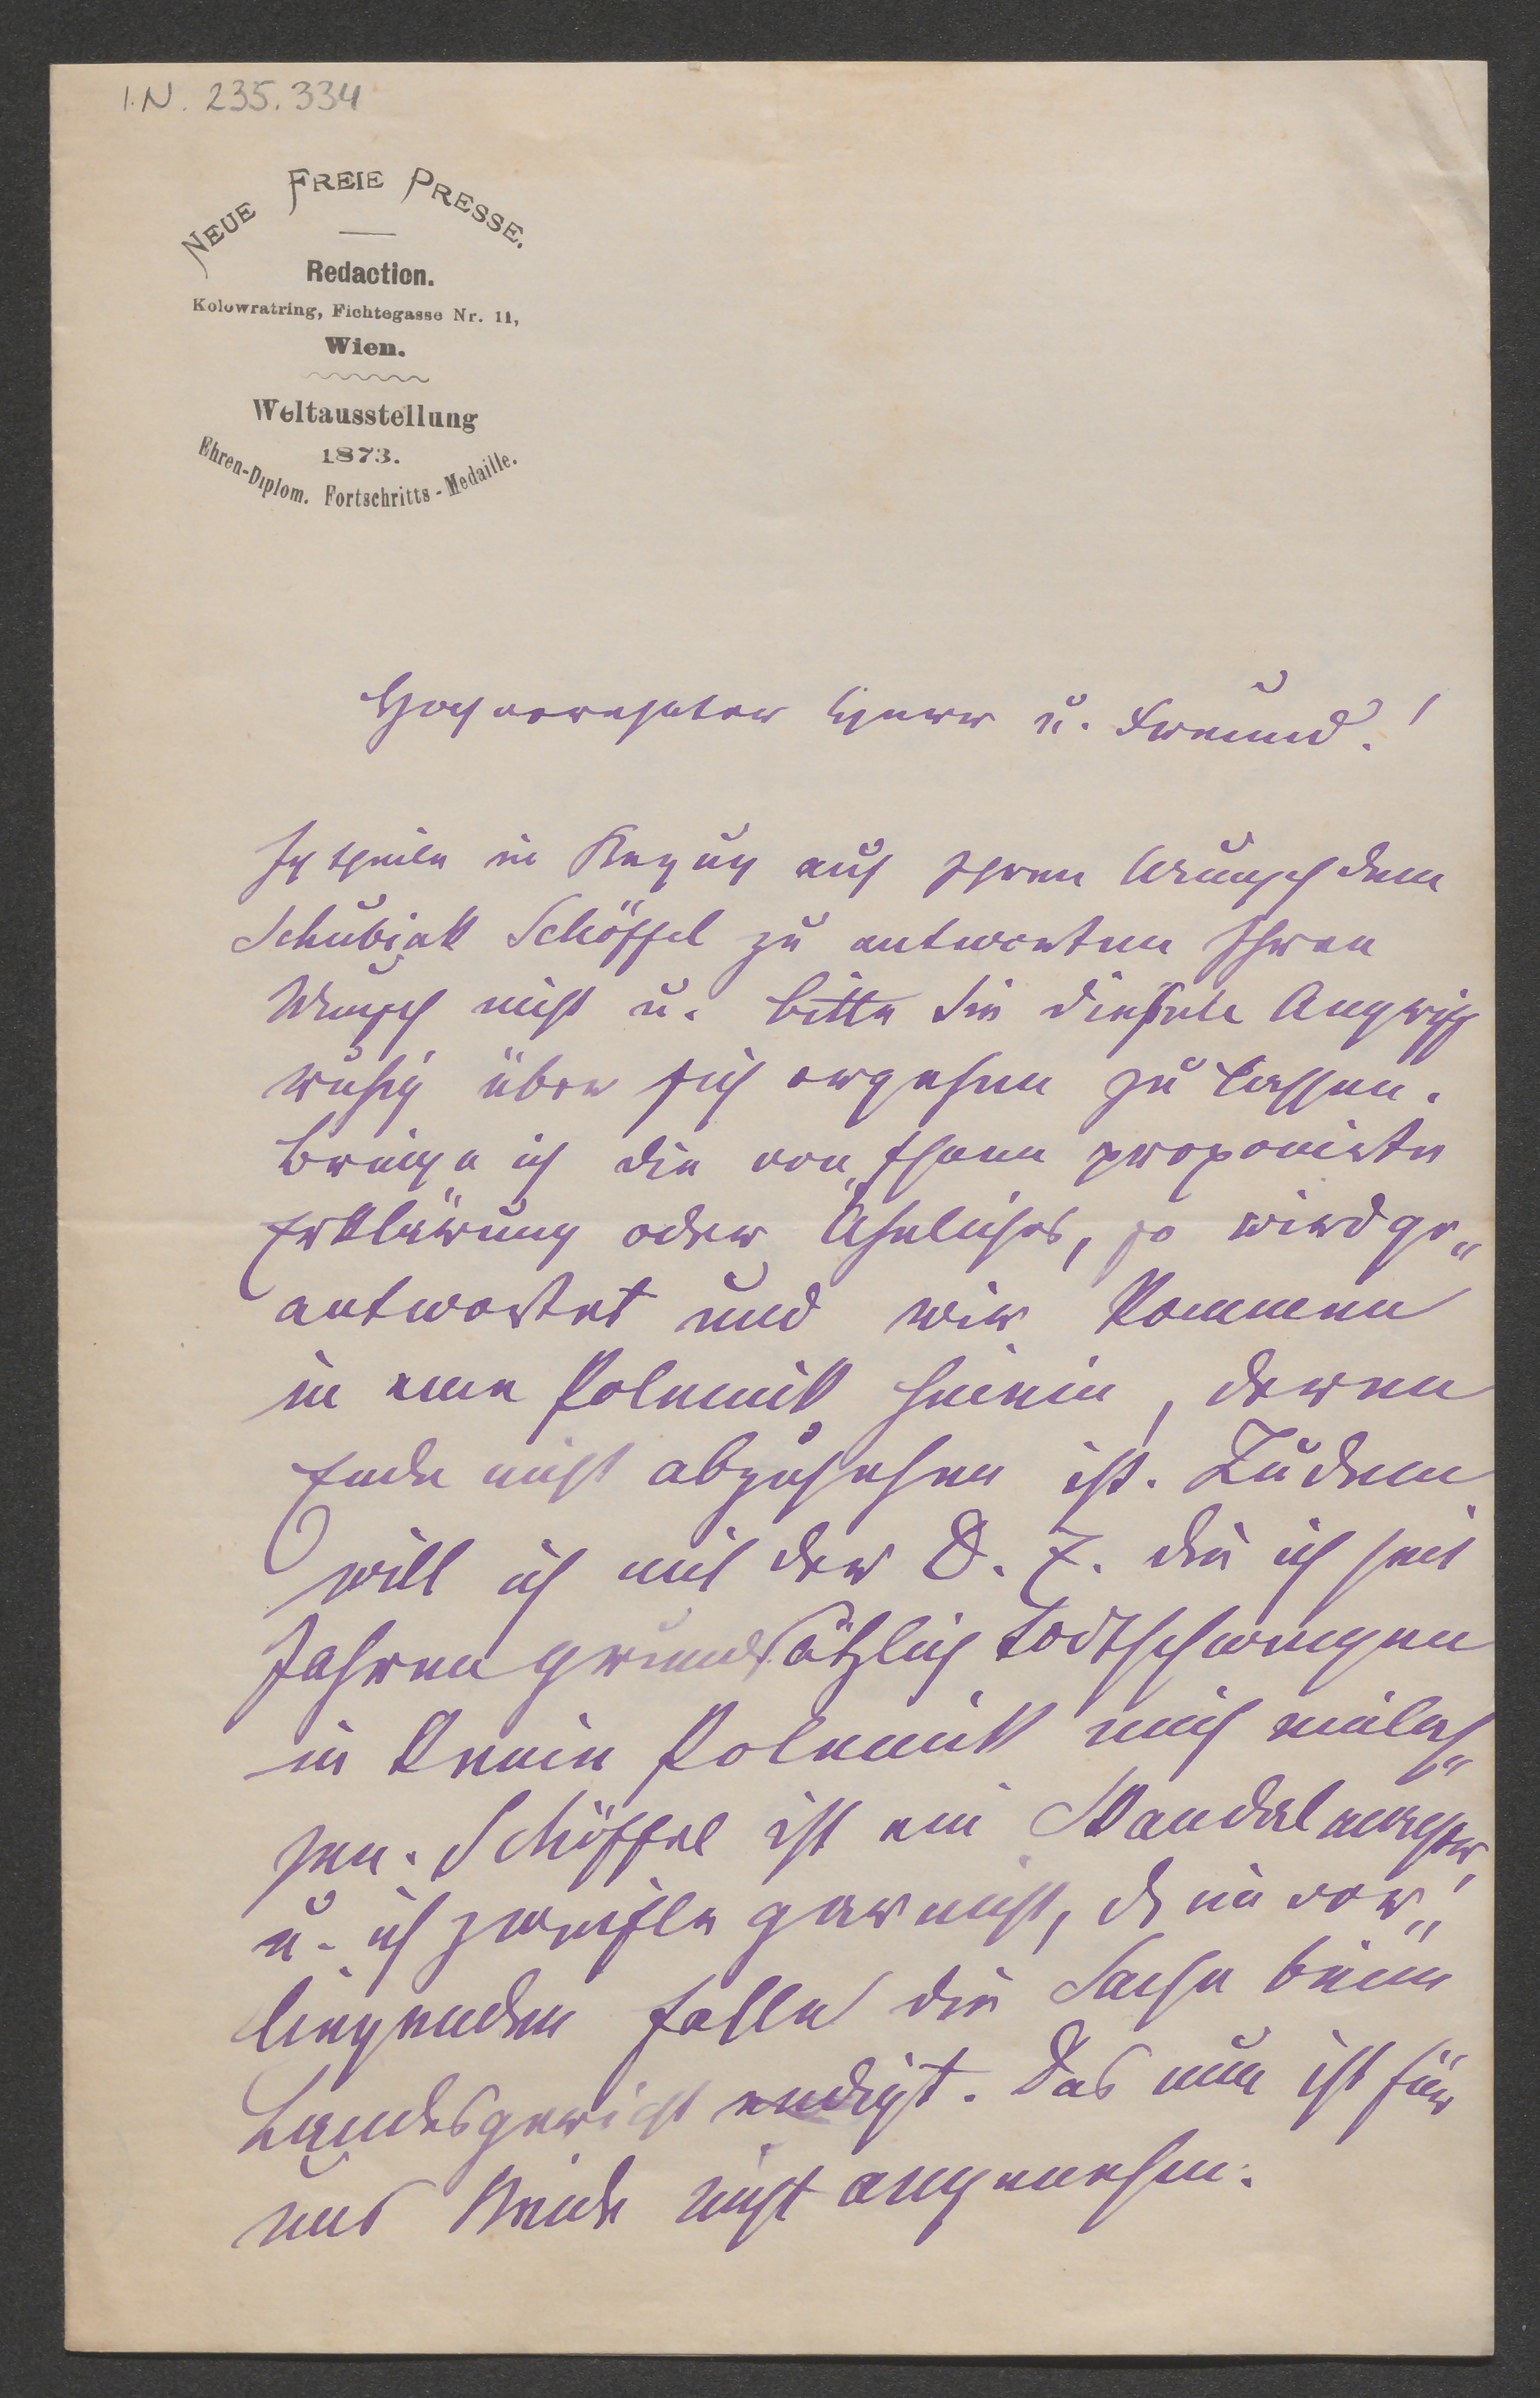 I.N. 235.334
NEUE FREIE PRESSE.
Redaction.
Kolowratring, Fichtegasse Nr. 11,
Wien.
Weltausstellung
1873.
Ehren-Diplom. Fortschritts-Medaille.
Hochverehrter Herr u. Freund!
Ich theile in Bezug auf Ihren Wunsch dem
Schubiak Schöffel zu antworten Ihren
Wunsch nicht u. bitte Sie Angriff
ruhig über sich ergehen zu lassen.
Bringe ich die von Ihnen proponirte
Erklärung oder Ähnliches, so wird ge„
antwortet und wir kommen
in eine Polemik hinein, deren
Ende nicht abzusehen ist. Zudem
will ich mit der D. Z. die ich seit
Jahren grundsätzlich todtschweigen
in keine Polemik mich einlas„
sen. Schöffel ist ein Skandalmacher,
u. ich zweifle gar nicht, d im vor„
liegenden Falle die Sache beim
Landesgericht endigt. Das nun ist für
uns Beide nicht angenehm.